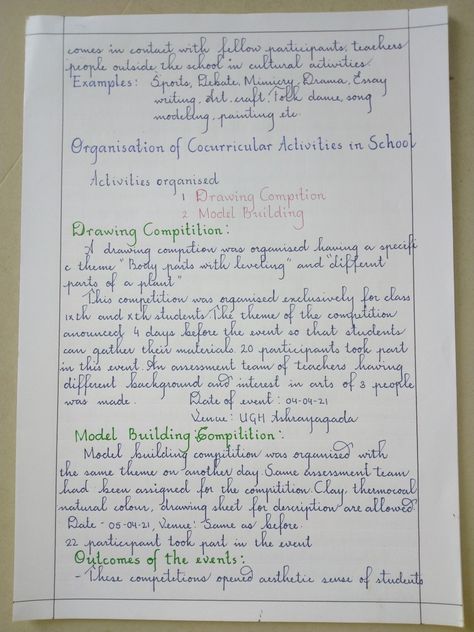 comes in contact with fellow participants, teachers
people outside the school in cultural activities.
Examples: Sports, Debate, Mimicry, Drama, Essay
writing, Art craft, Folk dance, song
modeling, painting etc
Organisation of Cocurricular Activities in School
Activities organised
1 Drawing Compition
2 Model Building
Drawing Compitition:
A drawing compition was organised having a specifi
c theme "Body parts with leveling" and "different
parts of a plant"
This competition was organised exclusively for class
ixth and xth students The theme of the competition
anounced 4 days before the event so that students
can gather their materials. 20 participants took part
in this event. An assessment team of teachers having
different background and interest in arts of 3 people
was made. Date of event: 04-04-21
Venue: UGH Ashrayagada
Model Building Compitition:
Model building compitition was organised with
the same theme on another day. Same assessment team
had been assigned for the compitition. Clay, thermocoal
natural colour, drawing sheet for description are allowed
Date - 05-04-21, Venue: Same as before.
22 participant took part in the event
Outcomes of the events:
- These competetions opened aesthetic sense of students